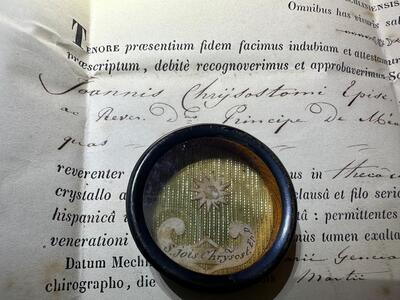 HLINIENSIS
Omnibus has visuris sal
TENORE præsentium fidem facimus indubiam et attestamur
præscriptum, debitè recognoverimus et approbaverimus
Joannis Chrysostomi Episc.
ac Rever. Principe de Mea
quas
reverenter us in thecâ
crystallo clausâ et filo seri
hispanicâ : permittentes
veneration nùs tamen exalta
Datum Mechl
chirographo, die Martii
S. Jois Chrysost. Ep. D.